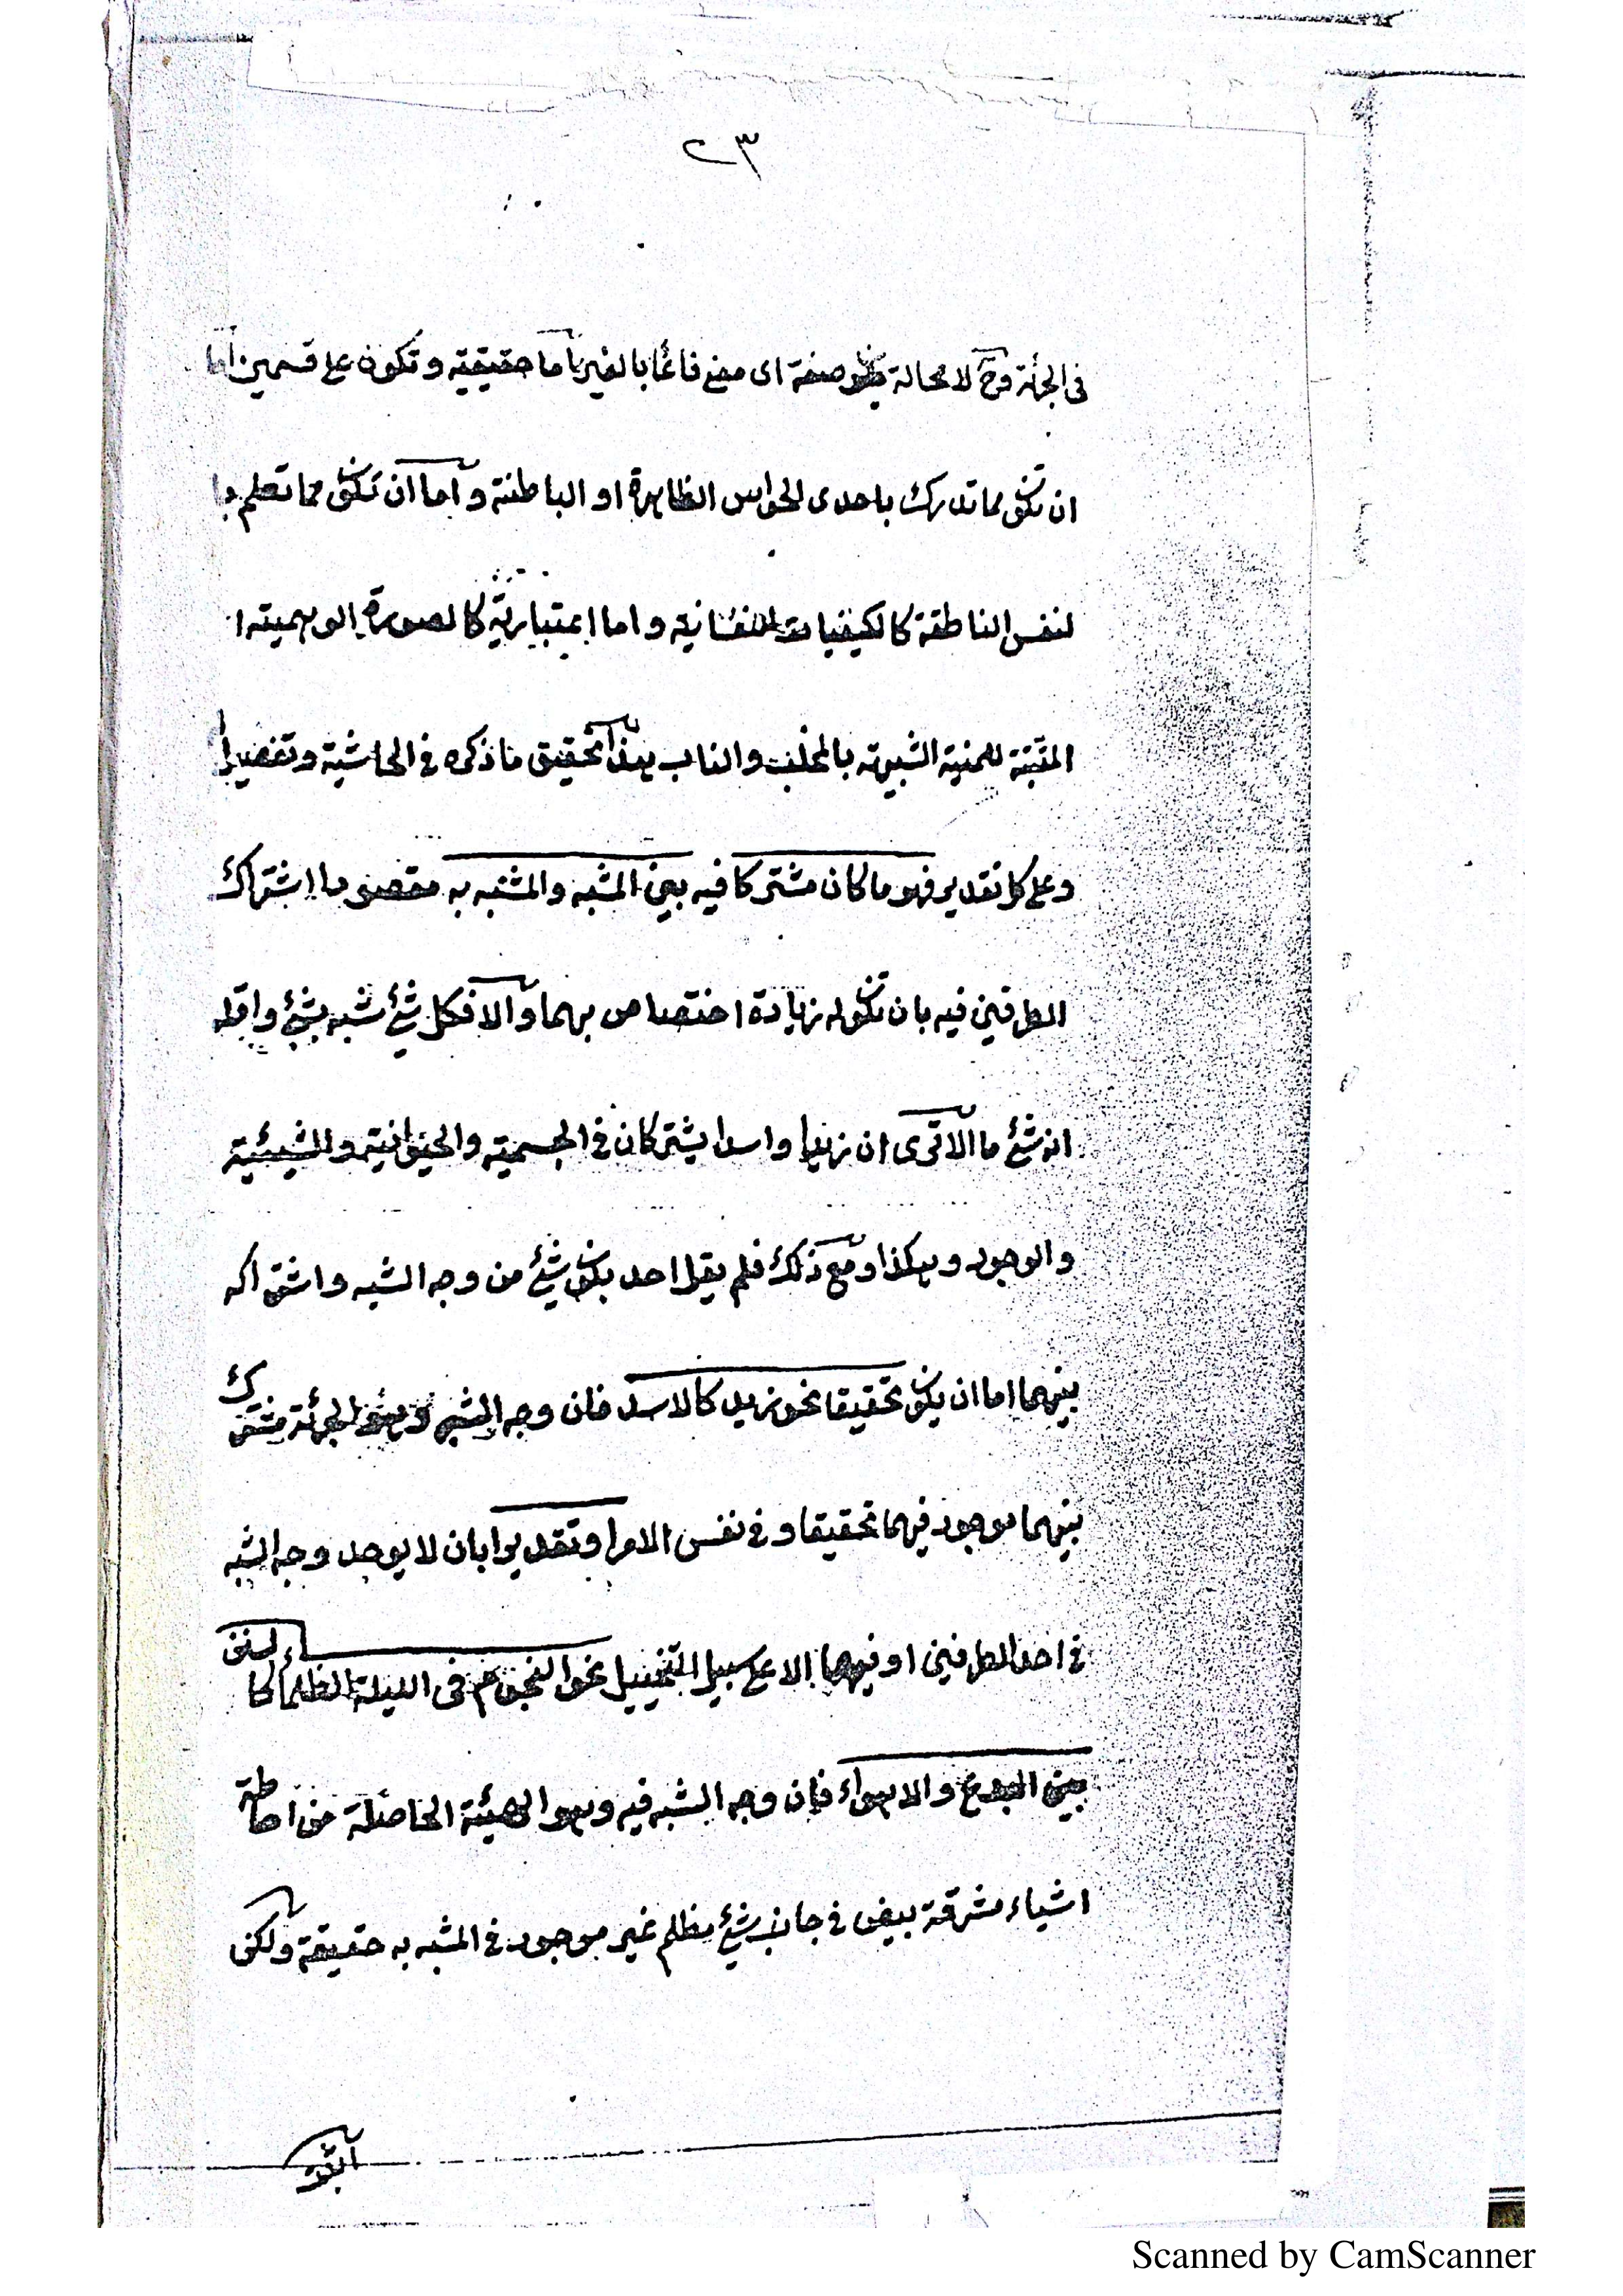 ٢٣
في الجرأة وح لا محالة يكون صفة اى معنى قائما بالغير اما حقيقية وتكون على قسمين اما
ان تكون مما تدرك باحدى الحواس الظاهرة او الباطنة واما ان تكون مما تعلم با
لنفس الناطقة كالكيفيات النفسانية واما اعتبارية كالصورة الوهمية ا
المثبتة للمنية الشبيهة بالمخلب والناب هذا تحقيق ما ذكره في الحاشية وتفصيل
وعلى كل تقدير فهو ما كان مشتركا فيه بين المشبه والمشبه به مقصودا اشتراك
الطرفين فيه بان تكون له زيادة اختصاص بهما والا فكل شئ شبه بشئ واقله
انه شئ ما الا ترى ان زيدا واسدا يشتركان في الجسمية والحيوانية والشيئية
والوجود وهكذا ومع ذلك فلم يقل احد بكون شئ من وجه الشبه واشتراكه
بينهما اما ان يكون تحقيقا نحو زيد كالاسد فان وجه الشبه وهو الجرئة مشترك
بينهما موجود فيهما تحقيقا وفي نفس الامر او تقديرا بان لا يوجد وجه الشبه
في احد الطرفين او فيهما الا على سبيل التخييل نحو النجوم في الليلة الظلماء كالسنن
بين البدع والاهواء فان وجه الشبه فيه وهو الهيئة الحاصلة من احاطة
اشياء مشرقة بيض في جانب شئ مظلم غير موجود في المشبه به حقيقة ولكن
Scanned by CamScanner